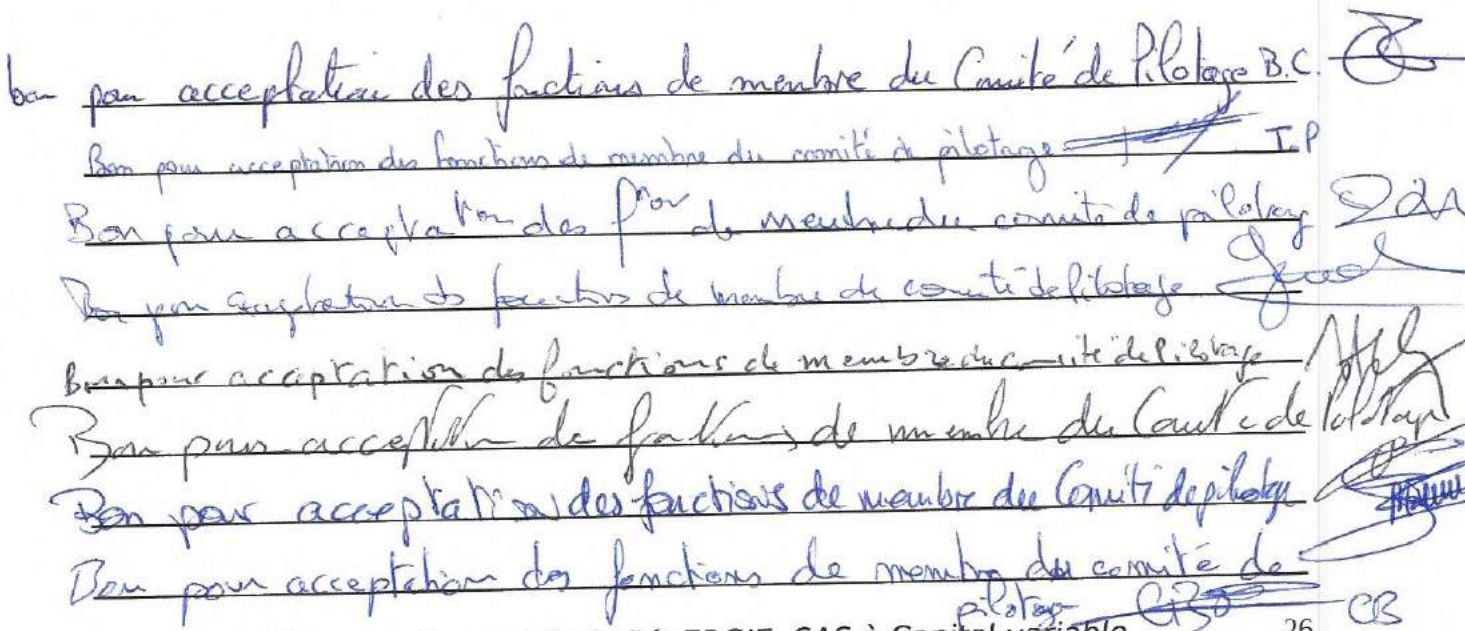 bon pour acceptation des fonctions de membre du Comité de Pilotage B.C.
Bon pour acceptation des fonctions de membre du comité de pilotage I.P
Bon pour acceptation des f^ions de membre du comité de pilotage
Bon pour acceptation des fonctions de membre de comité de Pilotage
Bon pour acceptation des fonctions de membre du comité de Pilotage
Bon pour acceptation de fonctions de membre du Comité de Pilotage
Bon pour acceptation des fonctions de membre du Comité de pilotage
Bon pour acceptation des fonctions de membre du comité de
pilotage CB
SAS à Capital variable 26